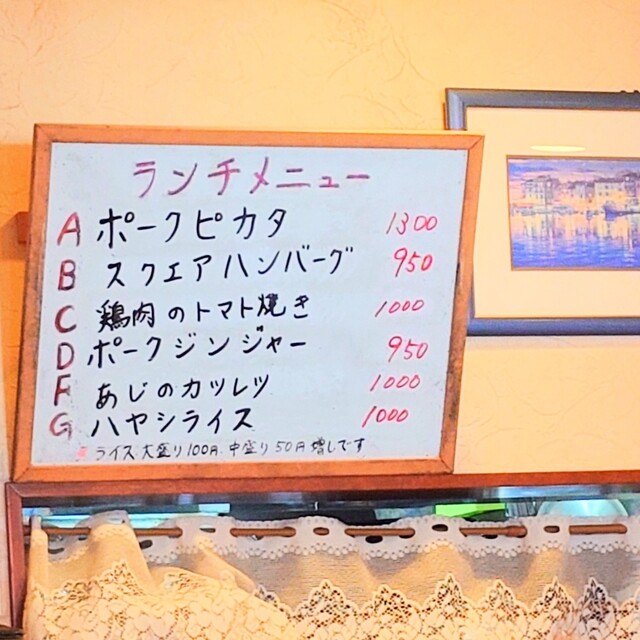 ランチメニュー
A ポークピカタ 1300
B スクエアハンバーグ 950
C 鶏肉のトマト焼き 1000
D ポークジンジャー 950
F あじのカツレツ 1000
G ハヤシライス 1000
ライス大盛り100円 中盛り50円増しです